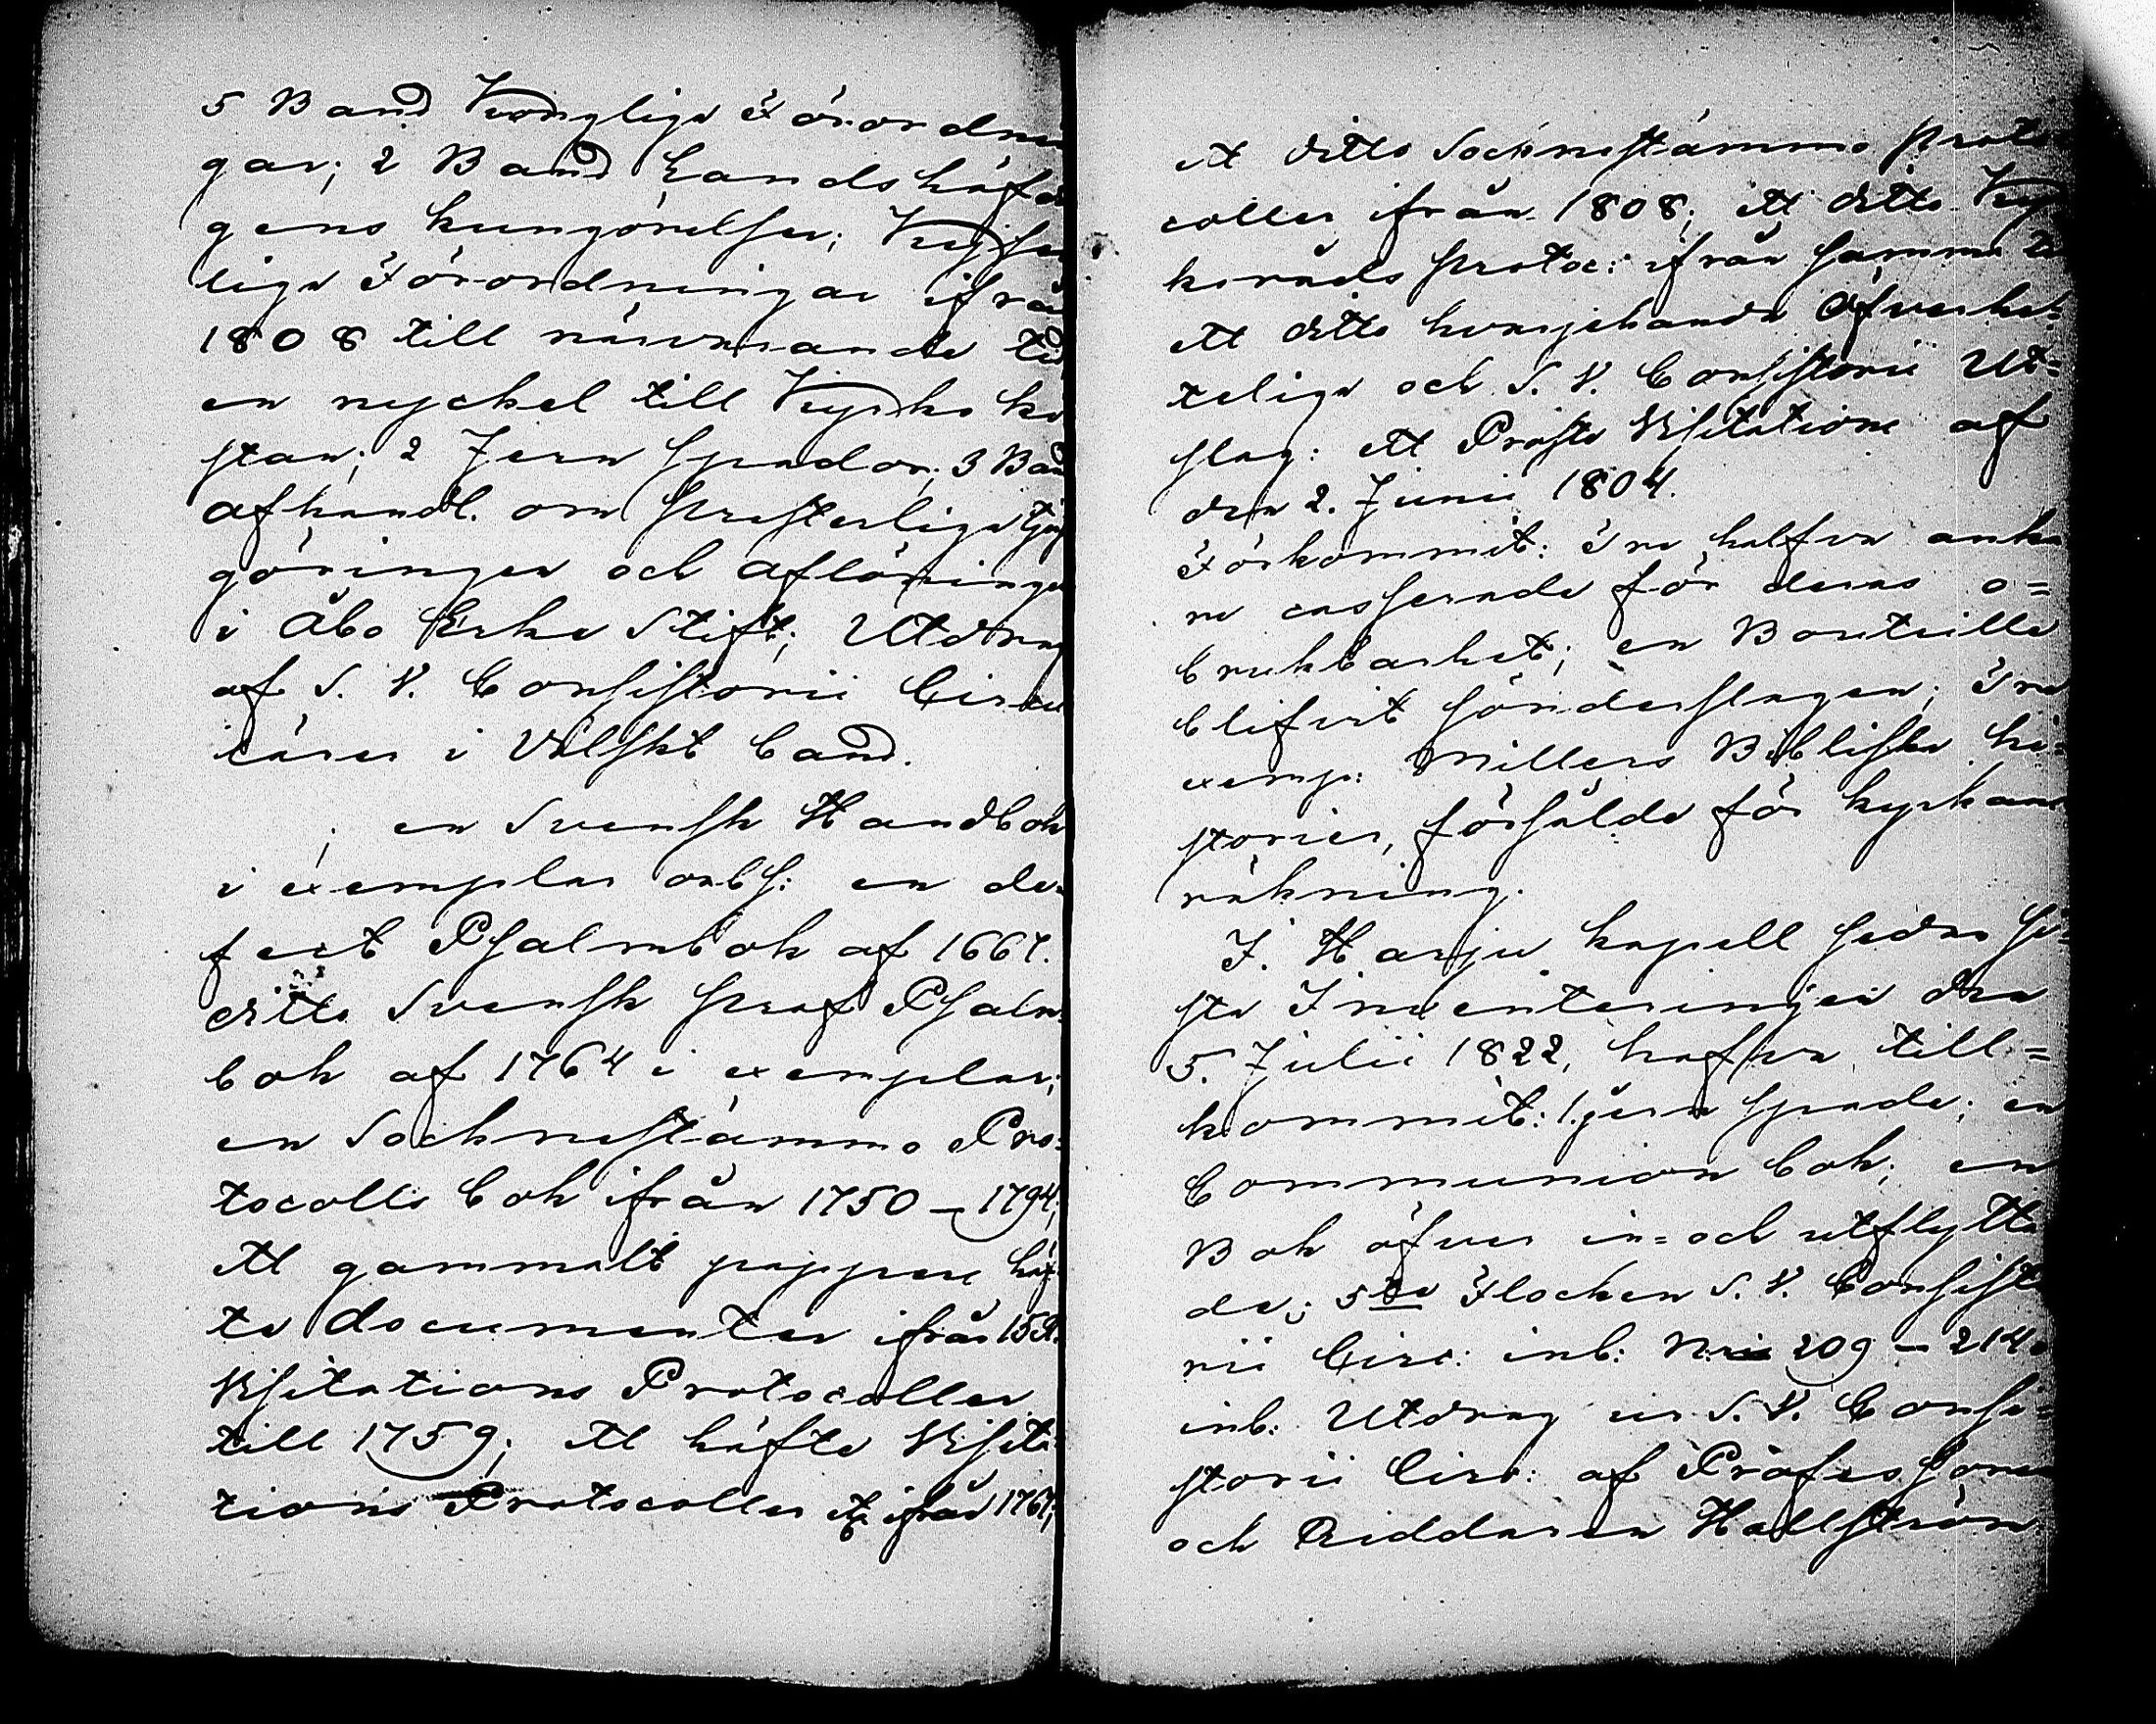 5 Band Kongliga Förordnin
gar; 2 Band Landshöfdin
gens kungörelser; Kejser
liga Förordningar ifrån
1808 till närvarande tid,
en nyckel till Kyrko ki
stan; 2 Jern spador; 3 Band
afhandl. om Presterliga tjenst
göringen och aflöningen
i Åbo Erke Stift; Utdrag
af S. V. Consistorii Circu
lärer i Välskt band.
; en Svensk Handbok
i exemplar obs: en de=
fect Psalmbok af 1667.
ditto Svensk prof Psalm
bok af 1764 i exemplar;
en Socknestämmo Pro=
tocolls bok ifrån 1750 – 1794;
ett gammalt papper häf
te documenter ifrån
Visitations Protocoller
till 1759; ett häfte Visita
tions Protocoller ifrån 1767;
ett ditto Sockenestämmo Proto
coller ifrån 1808; ett ditto Kyr
koråds Protoc: ifrån samma tid
ett ditto hvarjehanda Öfverhe=
teliga och S. V. Consistorii Ut=
slag: ett Prosts Visitations af
den 2. Junii 1804.
Förkommit: Tre halfva anka
re casserade för deras o=
brukbarhet; en Bouteille
blifvit sönderslagen; Tre
exemp: Millers Bibliska hi=
storier, försålde för kyrkans
räkning.
I. Harju kapell sedan si=
sta Inventeringen den
5. Julii 1822, hafva till=
kommit: 1. jern spade; en
Communion bok; en
Bok öfver in= och utflytta
de; 5te Flocken S. V. Consisto
rii Circ: inb: N:ris 209 – 214.
inb: Utdrag ur S. V. Consi=
storii Circ: af Professoren
och Riddaren Hällström